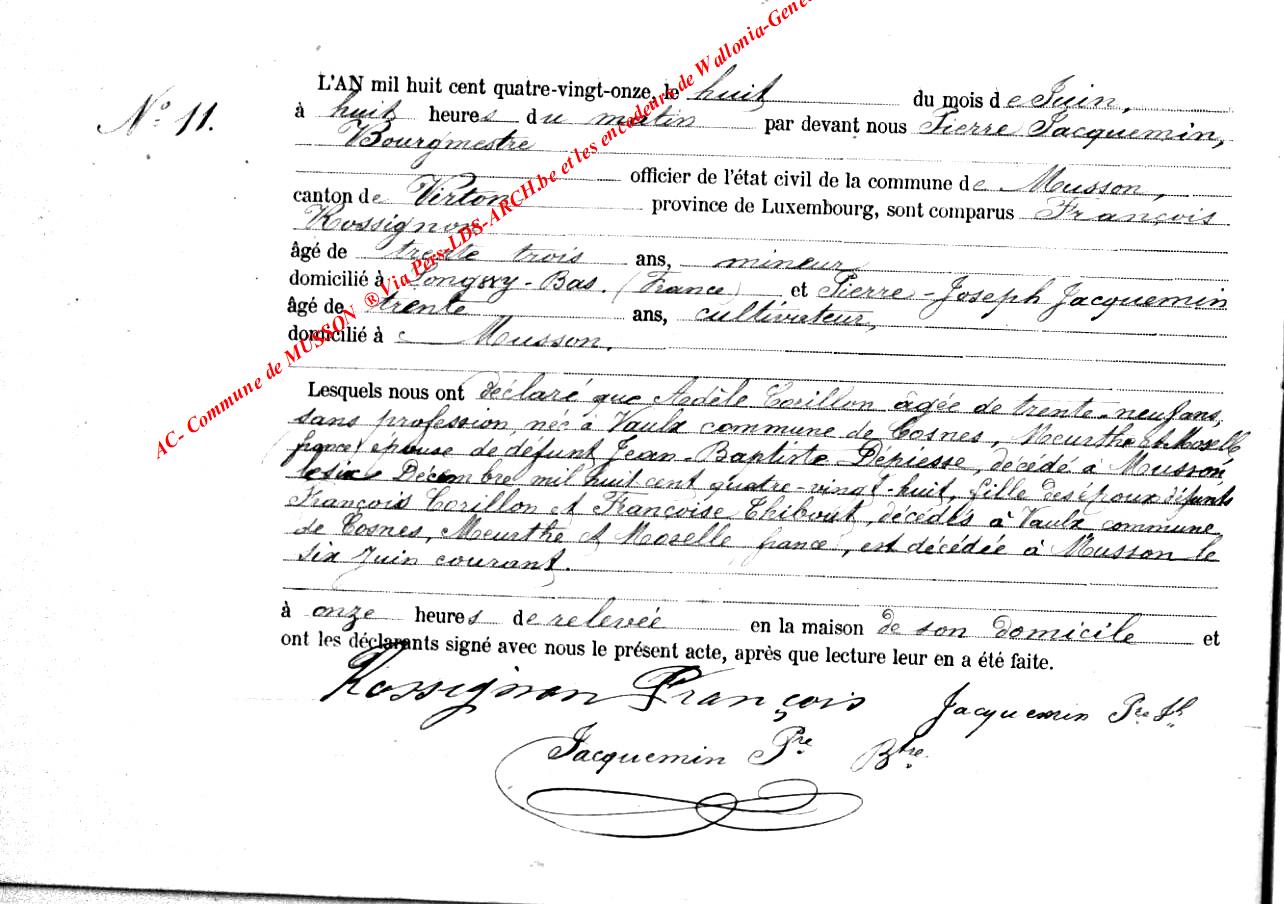 N° 11.
L'AN mil huit cent quatre-vingt-onze, le huit du mois de Juin,
à huit heures du matin par devant nous Pierre Jacquemin,
Bourgmestre
officier de l'état civil de la commune de Musson,
canton de Virton province de Luxembourg, sont comparus François
Rossignon
âgé de trente trois ans, mineur
domicilié à Longwy-Bas. (France) et Pierre-Joseph Jacquemin
âgé de trente ans, cultivateur,
domicilié à Musson.
Lesquels nous ont déclaré que Adèle Corillon âgée de trente-neuf ans,
sans profession, née à Vaulx commune de Cosnes, Meurthe et Moselle
(france) épouse de défunt Jean-Baptiste Dépiesse, décédé à Musson
le six Décembre mil huit cent quatre-vingt-huit, fille des époux défunts
François Corillon et Françoise Thibout, décédés à Vaulx commune
de Cosnes, Meurthe et Moselle france, est décédée à Musson le
six Juin courant.
à onze heures de relevée en la maison de son domicile et
ont les déclarants signé avec nous le présent acte, après que lecture leur en a été faite.
Rossignon François Jacquemin Pre Jh
Jacquemin Pre Btre.
AC- Commune de MUSSON ® Via Pers-LDS-ARCH.be et les encodeurs de Wallonia-Gene